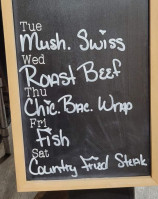 Tue
Mush. Swiss
Wed
Roast Beef
Thu
Chic. Bac. Wrap
Fri
Fish
Sat
Country Fried Steak